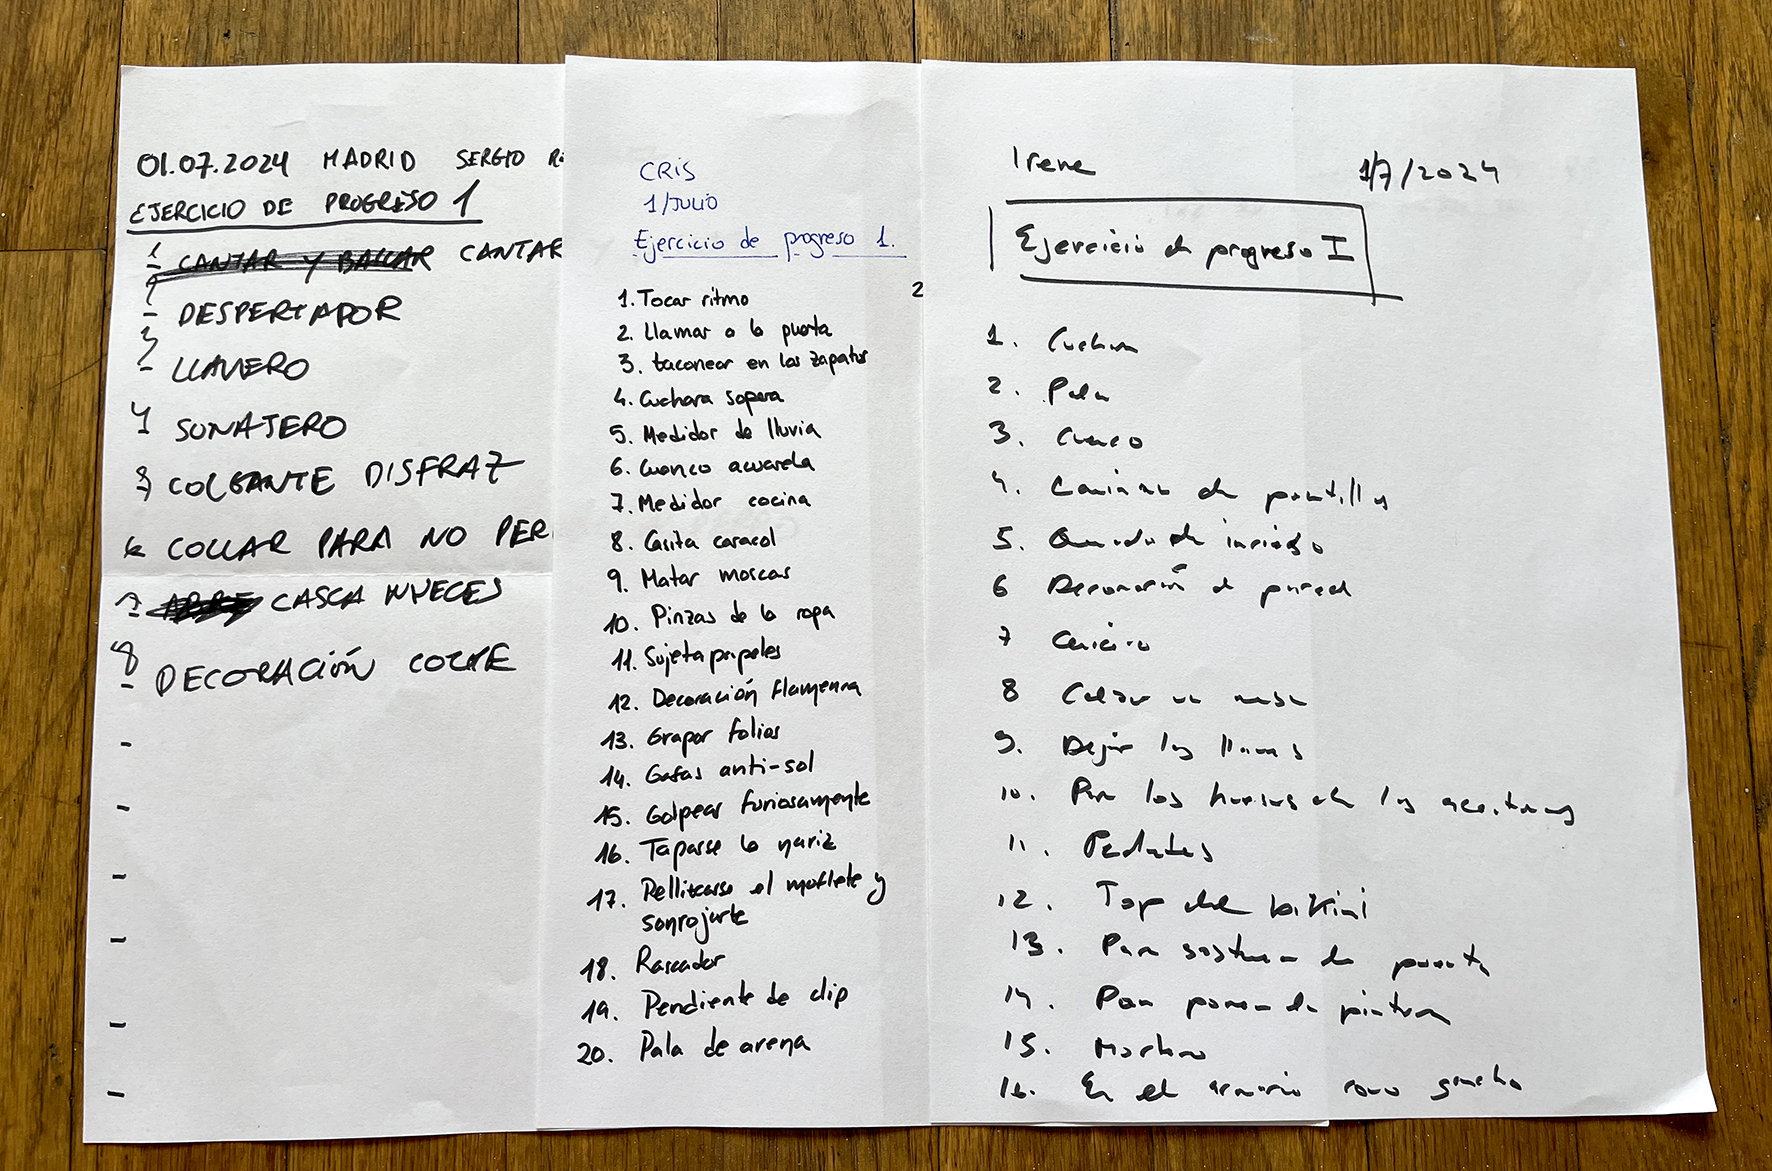 01.07.2024 MADRID SERGIO
EJERCICIO DE PROGRESO 1
1 CANTAR Y BAILAR CANTAR
DESPERTADOR
LLAVERO
4 SONAJERO
COLGANTE DISFRAZ
6 COLLAR PARA NO PER
7 ABRE CASCA NUECES
8 DECORACIÓN COCHE
CRIS
1/JULIO
Ejercicio de progreso 1.
1. Tocar ritmo
2. Llamar a la puerta
3. taconear en los zapatos
4. Cuchara sopera
5. Medidor de lluvia
6. Cuenco acuarela
7. Medidor cocina
8. Casita caracol
9. Matar moscas
10. Pinzas de la ropa
11. Sujetapapeles
12. Decoración flamenca
13. Grapar folios
14. Gafas anti-sol
15. Golpear furiosamente
16. Taparse la nariz
17. Pellizcarse el moflete y
sonrojarte
18. Rascador
19. Pendiente de clip
20. Pala de arena
2
Irene 1/7/2024
Ejercicio de progreso I
1. Cuchara
2. Pala
3. Cuenco
4. de
5. Quemador de incienso
6 Decoración de pared
7 Cenicero
8 Calzar una mesa
9. Dejar las llaves
10. Para los huesos de las aceitunas
11.
12. Top del bikini
13. Para sostener la puerta
14. Para poner la pintura
15. Mortero
16. En el armario como gancho